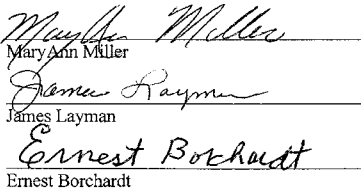 MaryAnn Miller
MaryAnn Miller
James Layman
James Layman
Ernest Borchardt
Ernest Borchardt